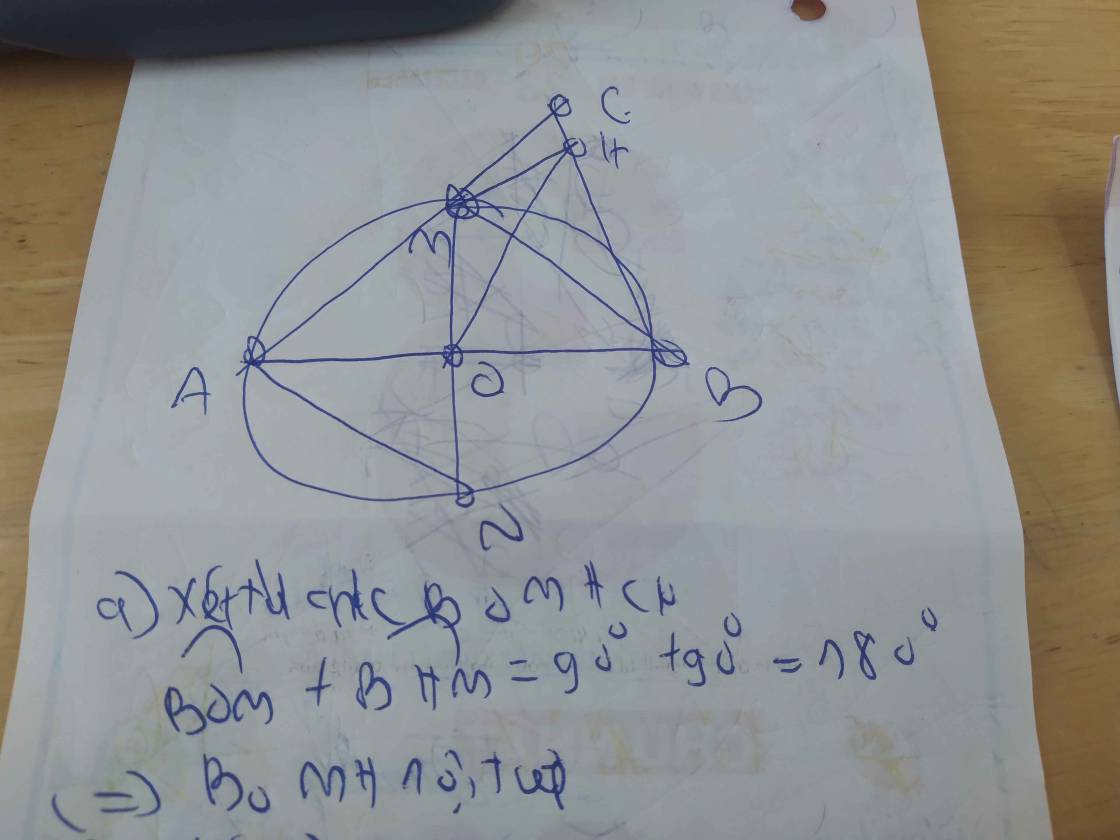 C
H
M
A
O
B
N
a) Xét tứ giác B O M H có
BOM + BHM = 90° + 90° = 180°
(=) BO MH nội tiếp